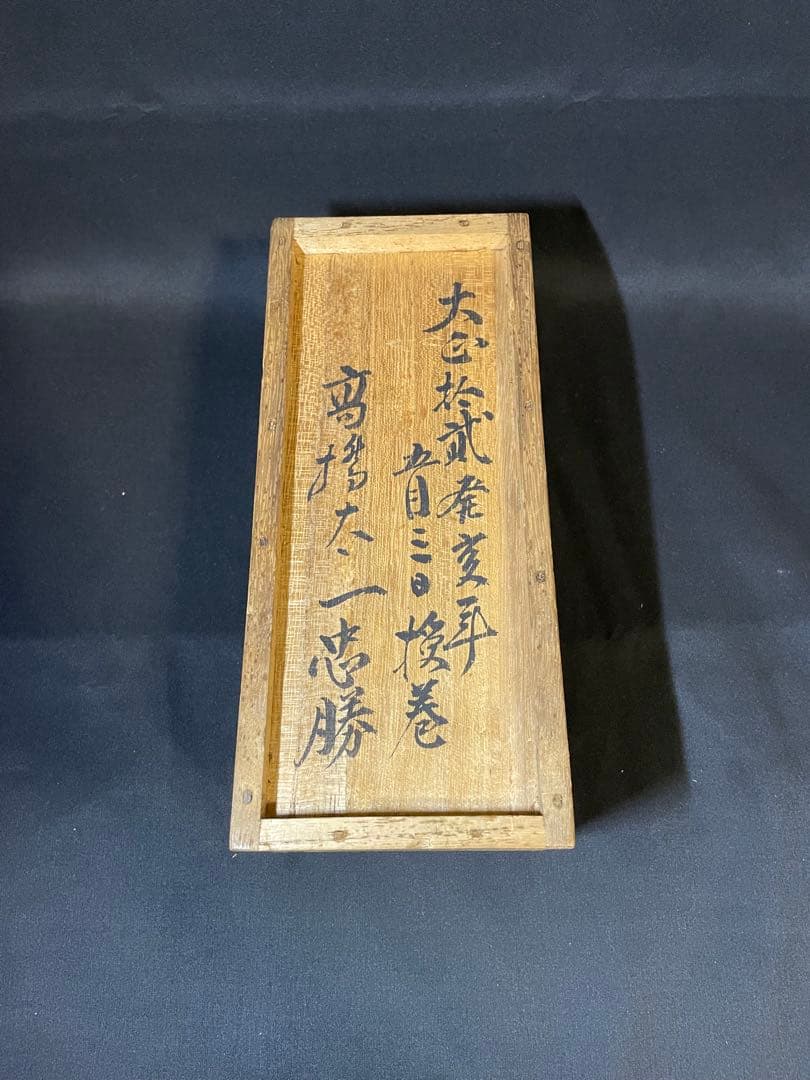 大正拾貳癸亥年
五月三日 換巻
高橋太一忠勝